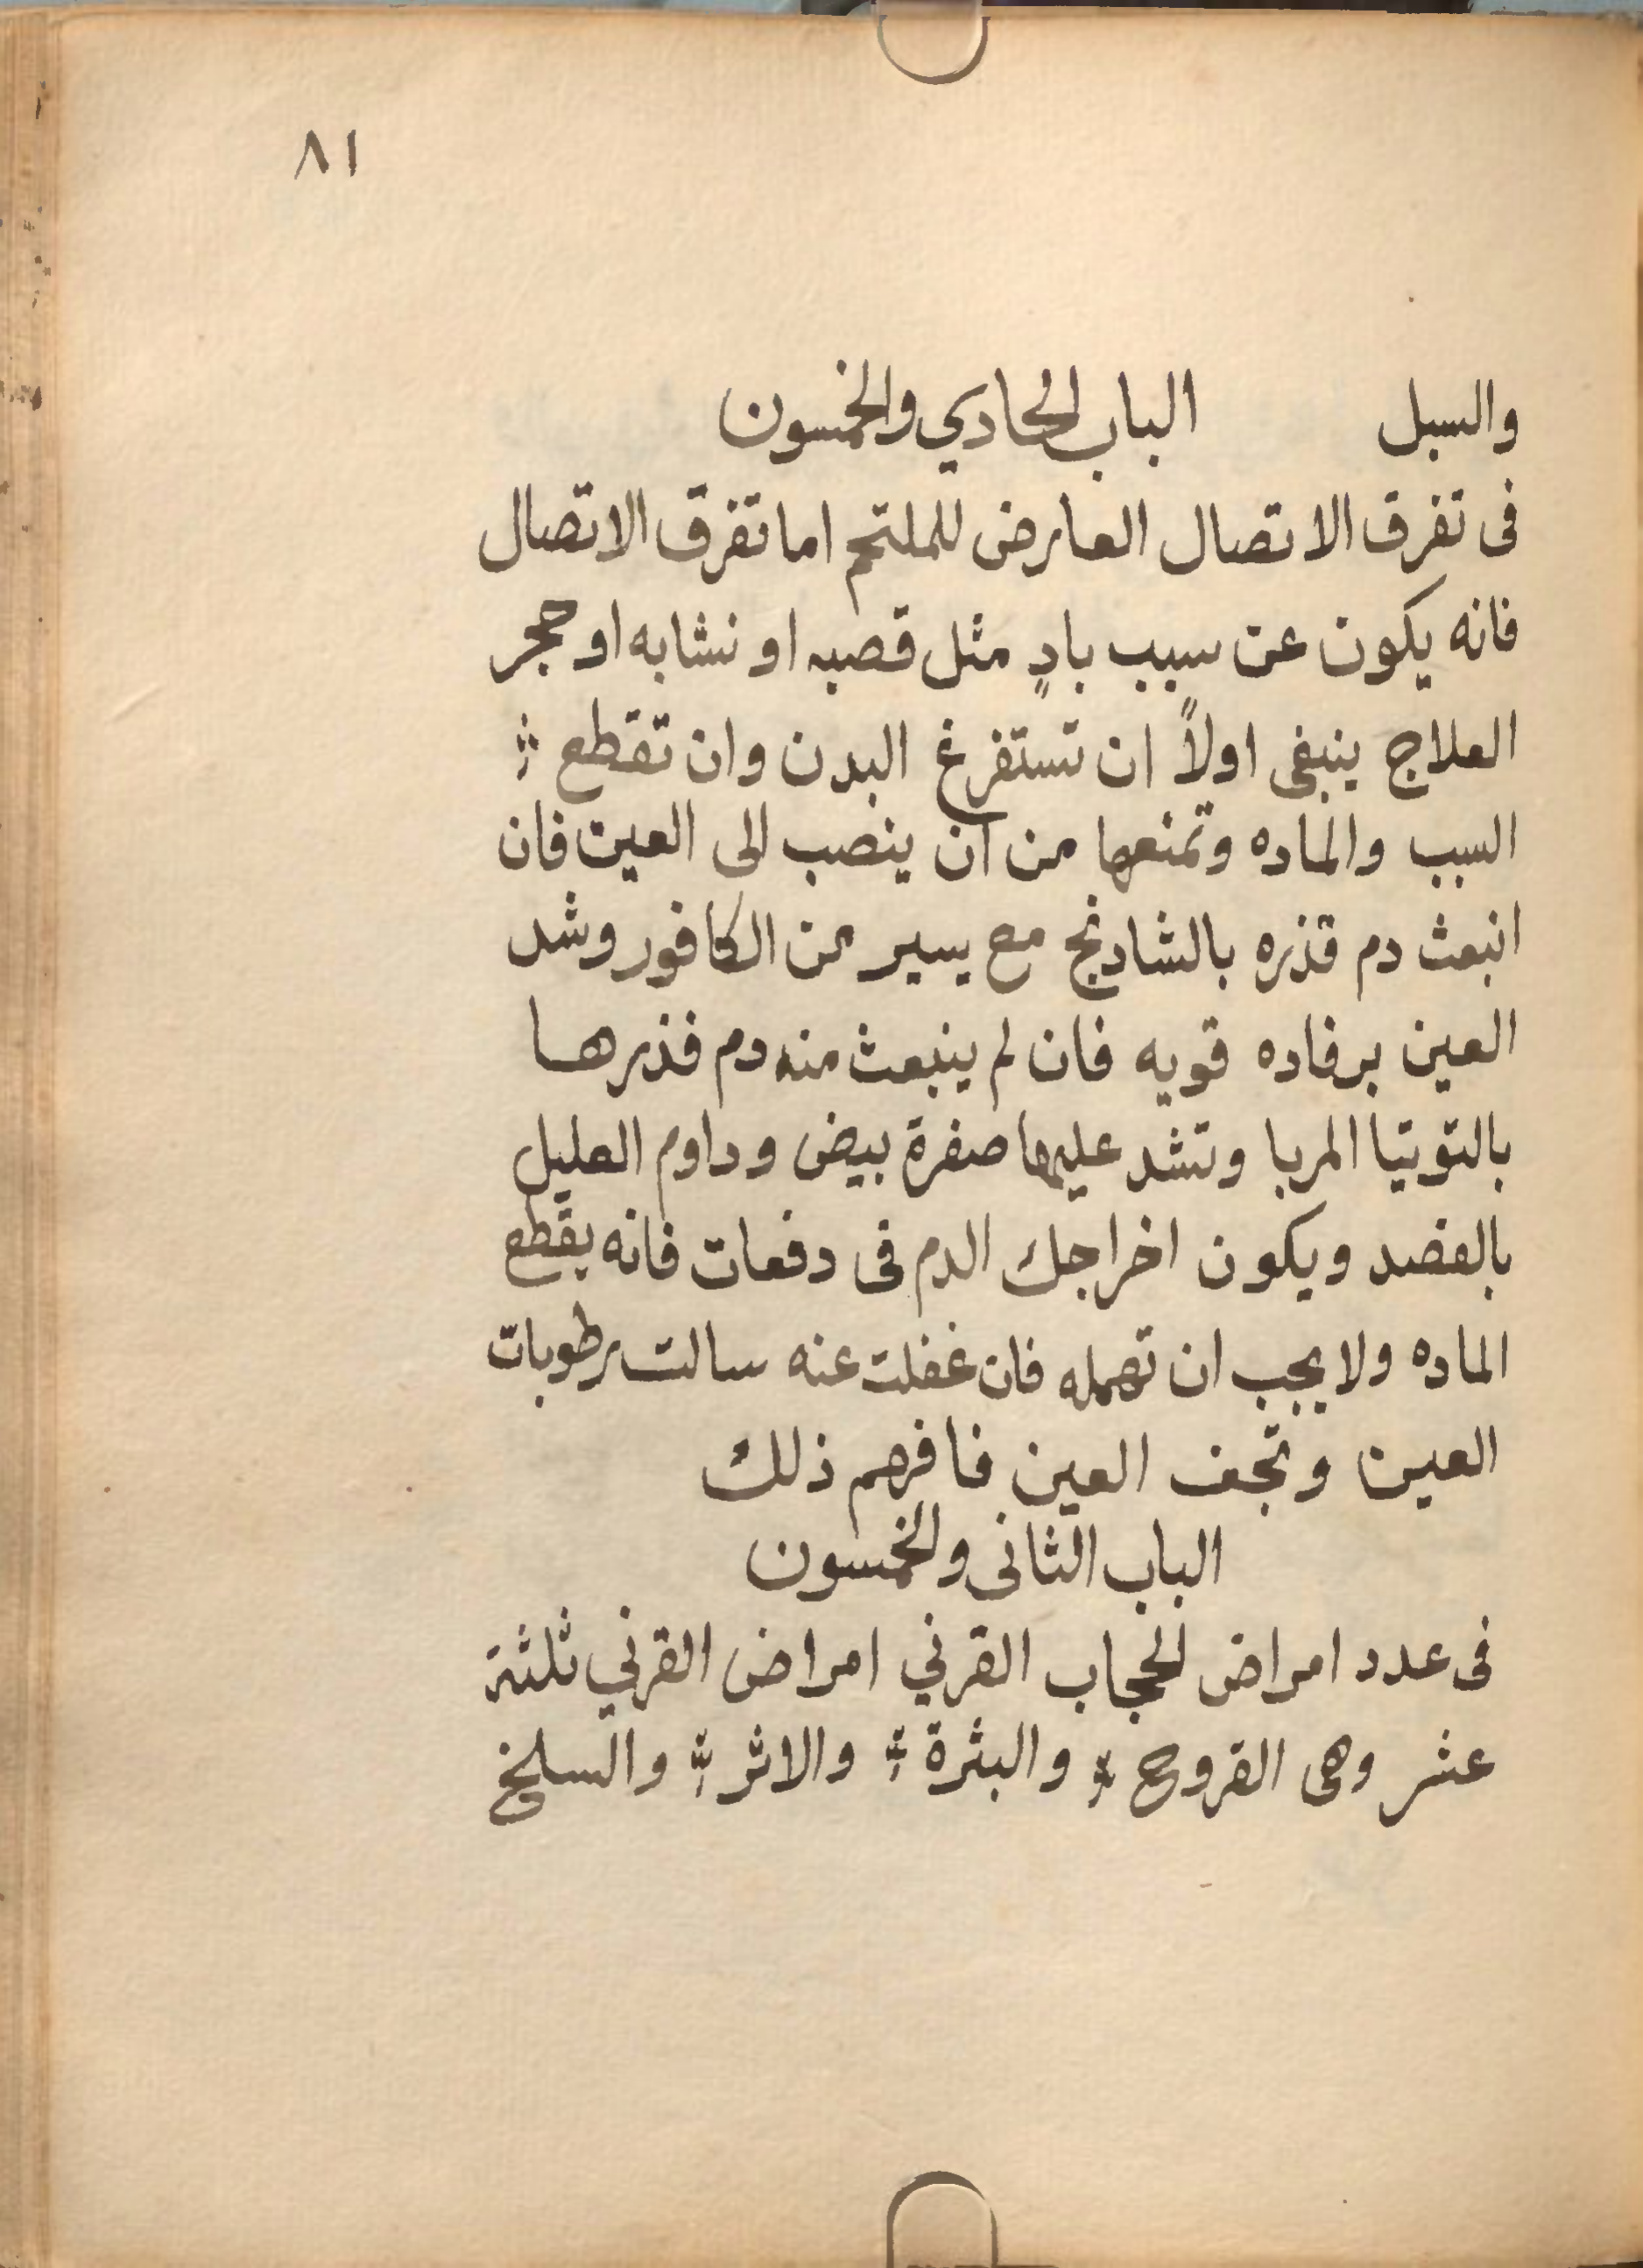 ٨١
والسبل الباب الحادي والخمسون
فى تفرق الاتصال العارض للملتحم اما تفرق الاتصال
فانه يكون عن سبب بادٍ مثل قصبه او نشابه او حجر
العلاج ينبغى اولاً ان تستفرغ البدن وان تقطع
السبب والماده وتمنعها من ان ينصب الى العين فان
انبعث دم قذره بالشادنج مع يسير من الكافور وشد
العين برفاده قويه فان لم ينبعث منه دم فذرها
بالتوتيا المربا وتشد عليها صفرة بيض وداوم العليل
بالفصد ويكون اخراجك الدم فى دفعات فانه يقطع
الماده ولا يجب ان تهمله فان غفلت عنه سالت رطوبات
العين وتجف العين فافهم ذلك
الباب الثانى والخمسون
فى عدد امراض الحجاب القرني امراض القرني ثلثة
عشر وهى القروح والبثرة والاثر والسلخ